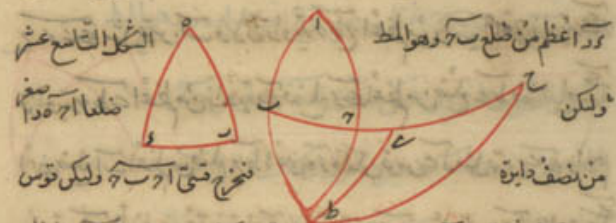 ـه د اعظم من ضلع ب ج وهو المط الشكل التاسع عشر
ولكن ضلعا ا ج ه د اصغر
من نصف دايرة فنخرج قسى ا ج ب ج وليكن قوس
ا
ه
ح
ب
ج
ط